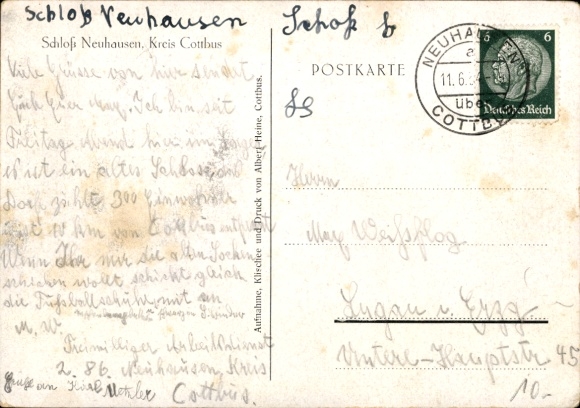 Schloß Neuhausen
Schloß Neuhausen, Kreis Cottbus
Viele Grüsse von hier sendet
Euch Euer Max. Ich bin seit
Freitag abend hier im Lager
Es ist ein altes Schloss, das
Dorf zählt 300 Einwohner
ist 10 km von Cottbus entfernt
Wenn Ihr mir die alten Socken
schicken wollt schickt gleich
die Fussballschuhe mit an
M. W.
Freiwilliger Arbeitsdienst
2. 86. Neuhausen, Kreis
Cottbus.
Grüße an
Metzler
Aufnahme, Klischee und Druck von Albert Heine, Cottbus.
POSTKARTE
NEUHAUSEN
11.6.34
über
COTTBUS
6 6
Deutsches Reich
Herrn
Max Weißflog
Lugau i. Erzg.
Untere-Hauptstr 45
10.-